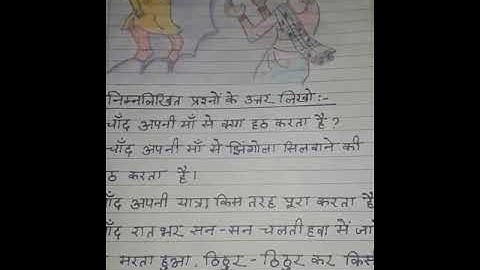 निम्नलिखित प्रश्नों के उत्तर लिखो:-
चाँद अपनी माँ से क्या हठ करता है?
चाँद अपनी माँ से झिंगोला सिलवाने की
ठ करता है।
चाँद अपनी यात्रा किस तरह पूरा करता है
चाँद रात भर सन-सन चलती हवा में जा
मरता हुआ, ठिठुर-ठिठुर कर किस